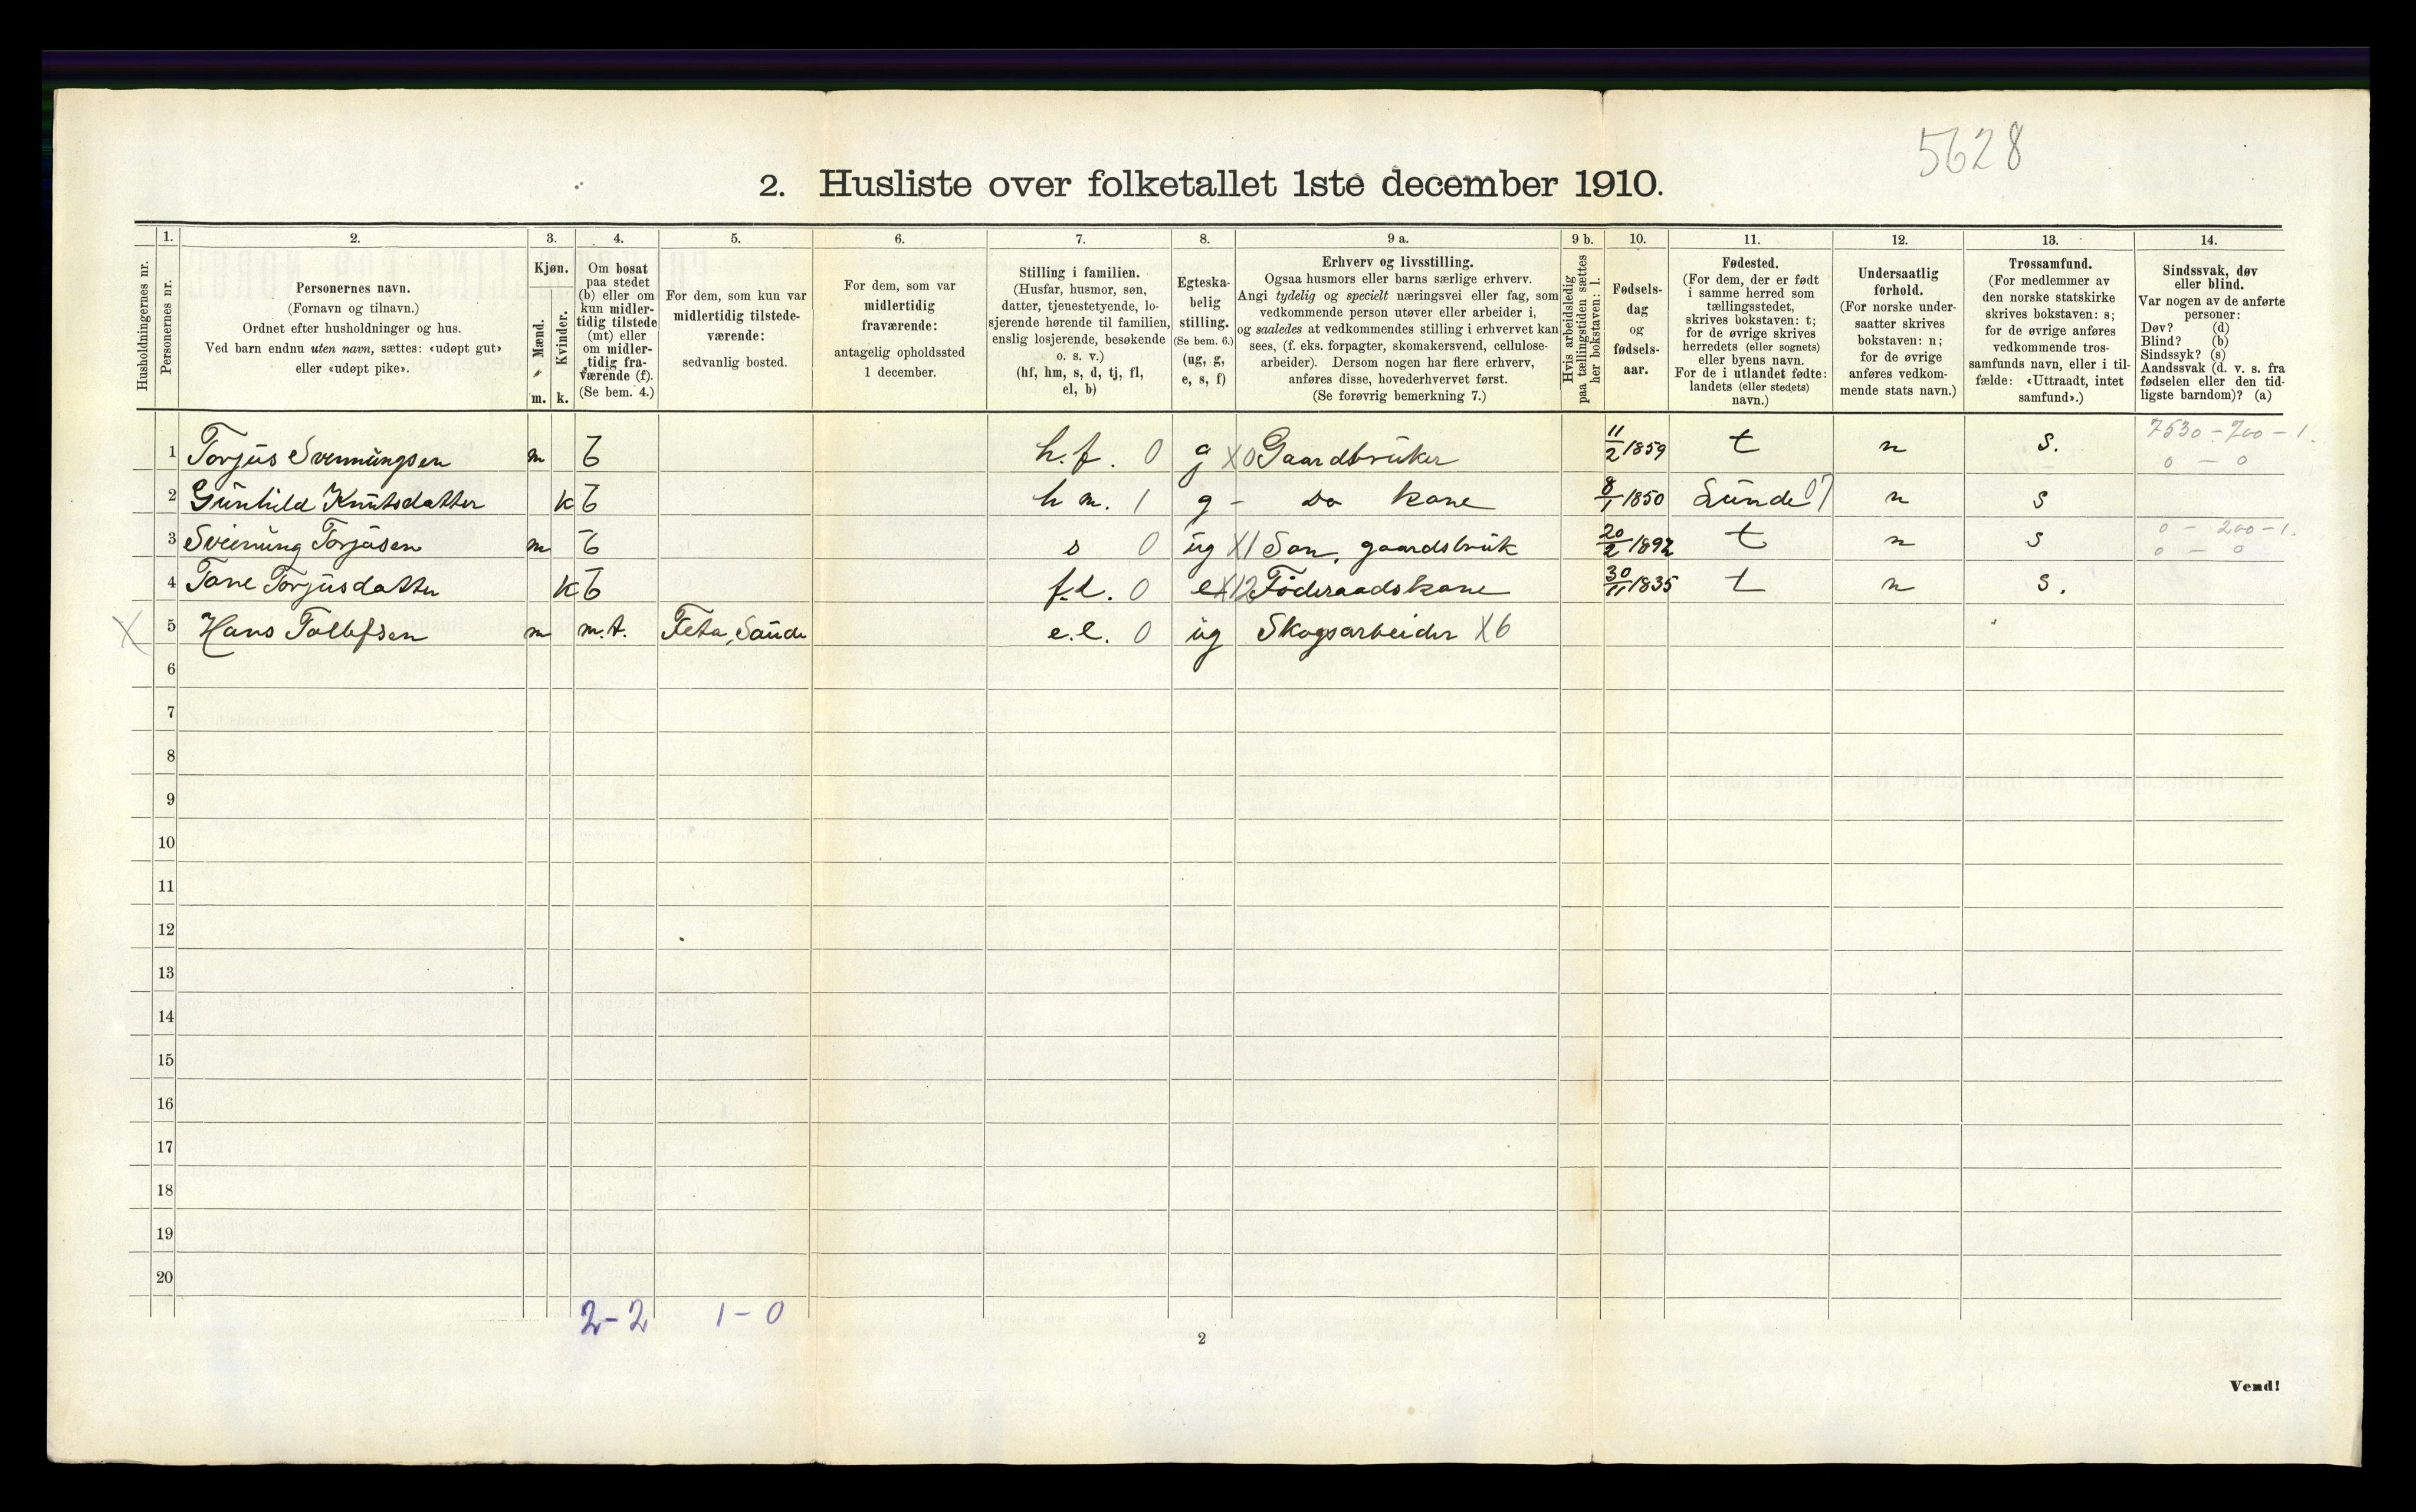 5628
2. Husliste over folketallet 1ste december 1910.
Husholdningernes nr.
1.
Personernes nr.
2.
Personernes navn.
(Fornavn og tilnavn.)
Ordnet efter husholdninger og hus.
Ved barn endnu uten navn, sættes: «udøpt gut»
eller «udøpt pike».
3.
Kjøn.
Mænd.
Kvinder.
m.
k.
4.
Om bosat
paa stedet
(b) eller om
kun midler-
tidig tilstede
(mt) eller
om midler-
tidig fra-
værende (f).
(Se bem. 4.)
5.
For dem, som kun var
midlertidig tilstede-
værende:
sedvanlig bosted.
6.
For dem, som var
midlertidig
fraværende:
antagelig opholdssted
1 december.
7.
Stilling i familien.
(Husfar, husmor, søn,
datter, tjenestetyende, lo-
sjerende hørende til familien,
enslig losjerende, besøkende
o. s. v.)
(hf, hm, s, d, tj, fl,
el, b)
8.
Egteska-
belig
stilling.
(Se bem. 6.)
(ug, g,
e, s, f)
9 a.
Erhverv og livsstilling.
Ogsaa husmors eller barns særlige erhverv.
Angi tydelig og specielt næringsvei eller fag, som
vedkommende person utøver eller arbeider i,
og saaledes at vedkommendes stilling i erhvervet kan
sees, (f. eks. forpagter, skomakersvend, cellulose-
arbeider). Dersom nogen har flere erhverv,
anføres disse, hovederhvervet først.
(Se forøvrig bemerkning 7.)
9 b.
Hvis arbeidsledig
paa tællingstiden sættes
her bokstaven: l.
10.
Fødsels-
dag
og
fødsels-
aar.
11.
Fødested.
(For dem, der er født
i samme herred som
tællingsstedet,
skrives bokstaven: t;
for de øvrige skrives
herredets (eller sognets)
eller byens navn.
For de i utlandet fødte:
landets (eller stedets)
navn.)
12.
Undersaatlig
forhold.
(For norske under-
saatter skrives
bokstaven: n;
for de øvrige
anføres vedkom-
mende stats navn.)
13.
Trossamfund.
(For medlemmer av
den norske statskirke
skrives bokstaven: s;
for de øvrige anføres
vedkommende tros-
samfunds navn, eller i til-
fælde: «Uttraadt, intet
samfund».)
14.
Sindssvak, døv
eller blind.
Var nogen av de anførte
personer:
Døv? (d)
Blind? (b)
Sindssyk? (s)
Aandssvak (d. v. s. fra
fødselen eller den tid-
ligste barndom)? (a)
1 Torjus Svennungsen m b h.f. 0 g X0 Gaardbruker 11/2 1859 t n s. 7530-700-1. 0-0
2 Gunhild Knutsdatter k b h m. 1 g - Do kone 8/1 1850 Lunde 07 n s
3 Sveinung Torjusen m b s 0 ug X1 Søn, gaardsbruk 20/2 1892 t n s 0-200-1. 0-0
4 Tone Torjusdatter k b f.d. 0 e X12 Føderaadskone 30/11 1835 t n s.
X 5 Hans Tollefsen m m.t. Saude e.l. 0 ug Skogsarbeider X6
6
7
8
9
10
11
12
13
14
15
16
17
18
19
20
2-2 1-0
2
Vend!